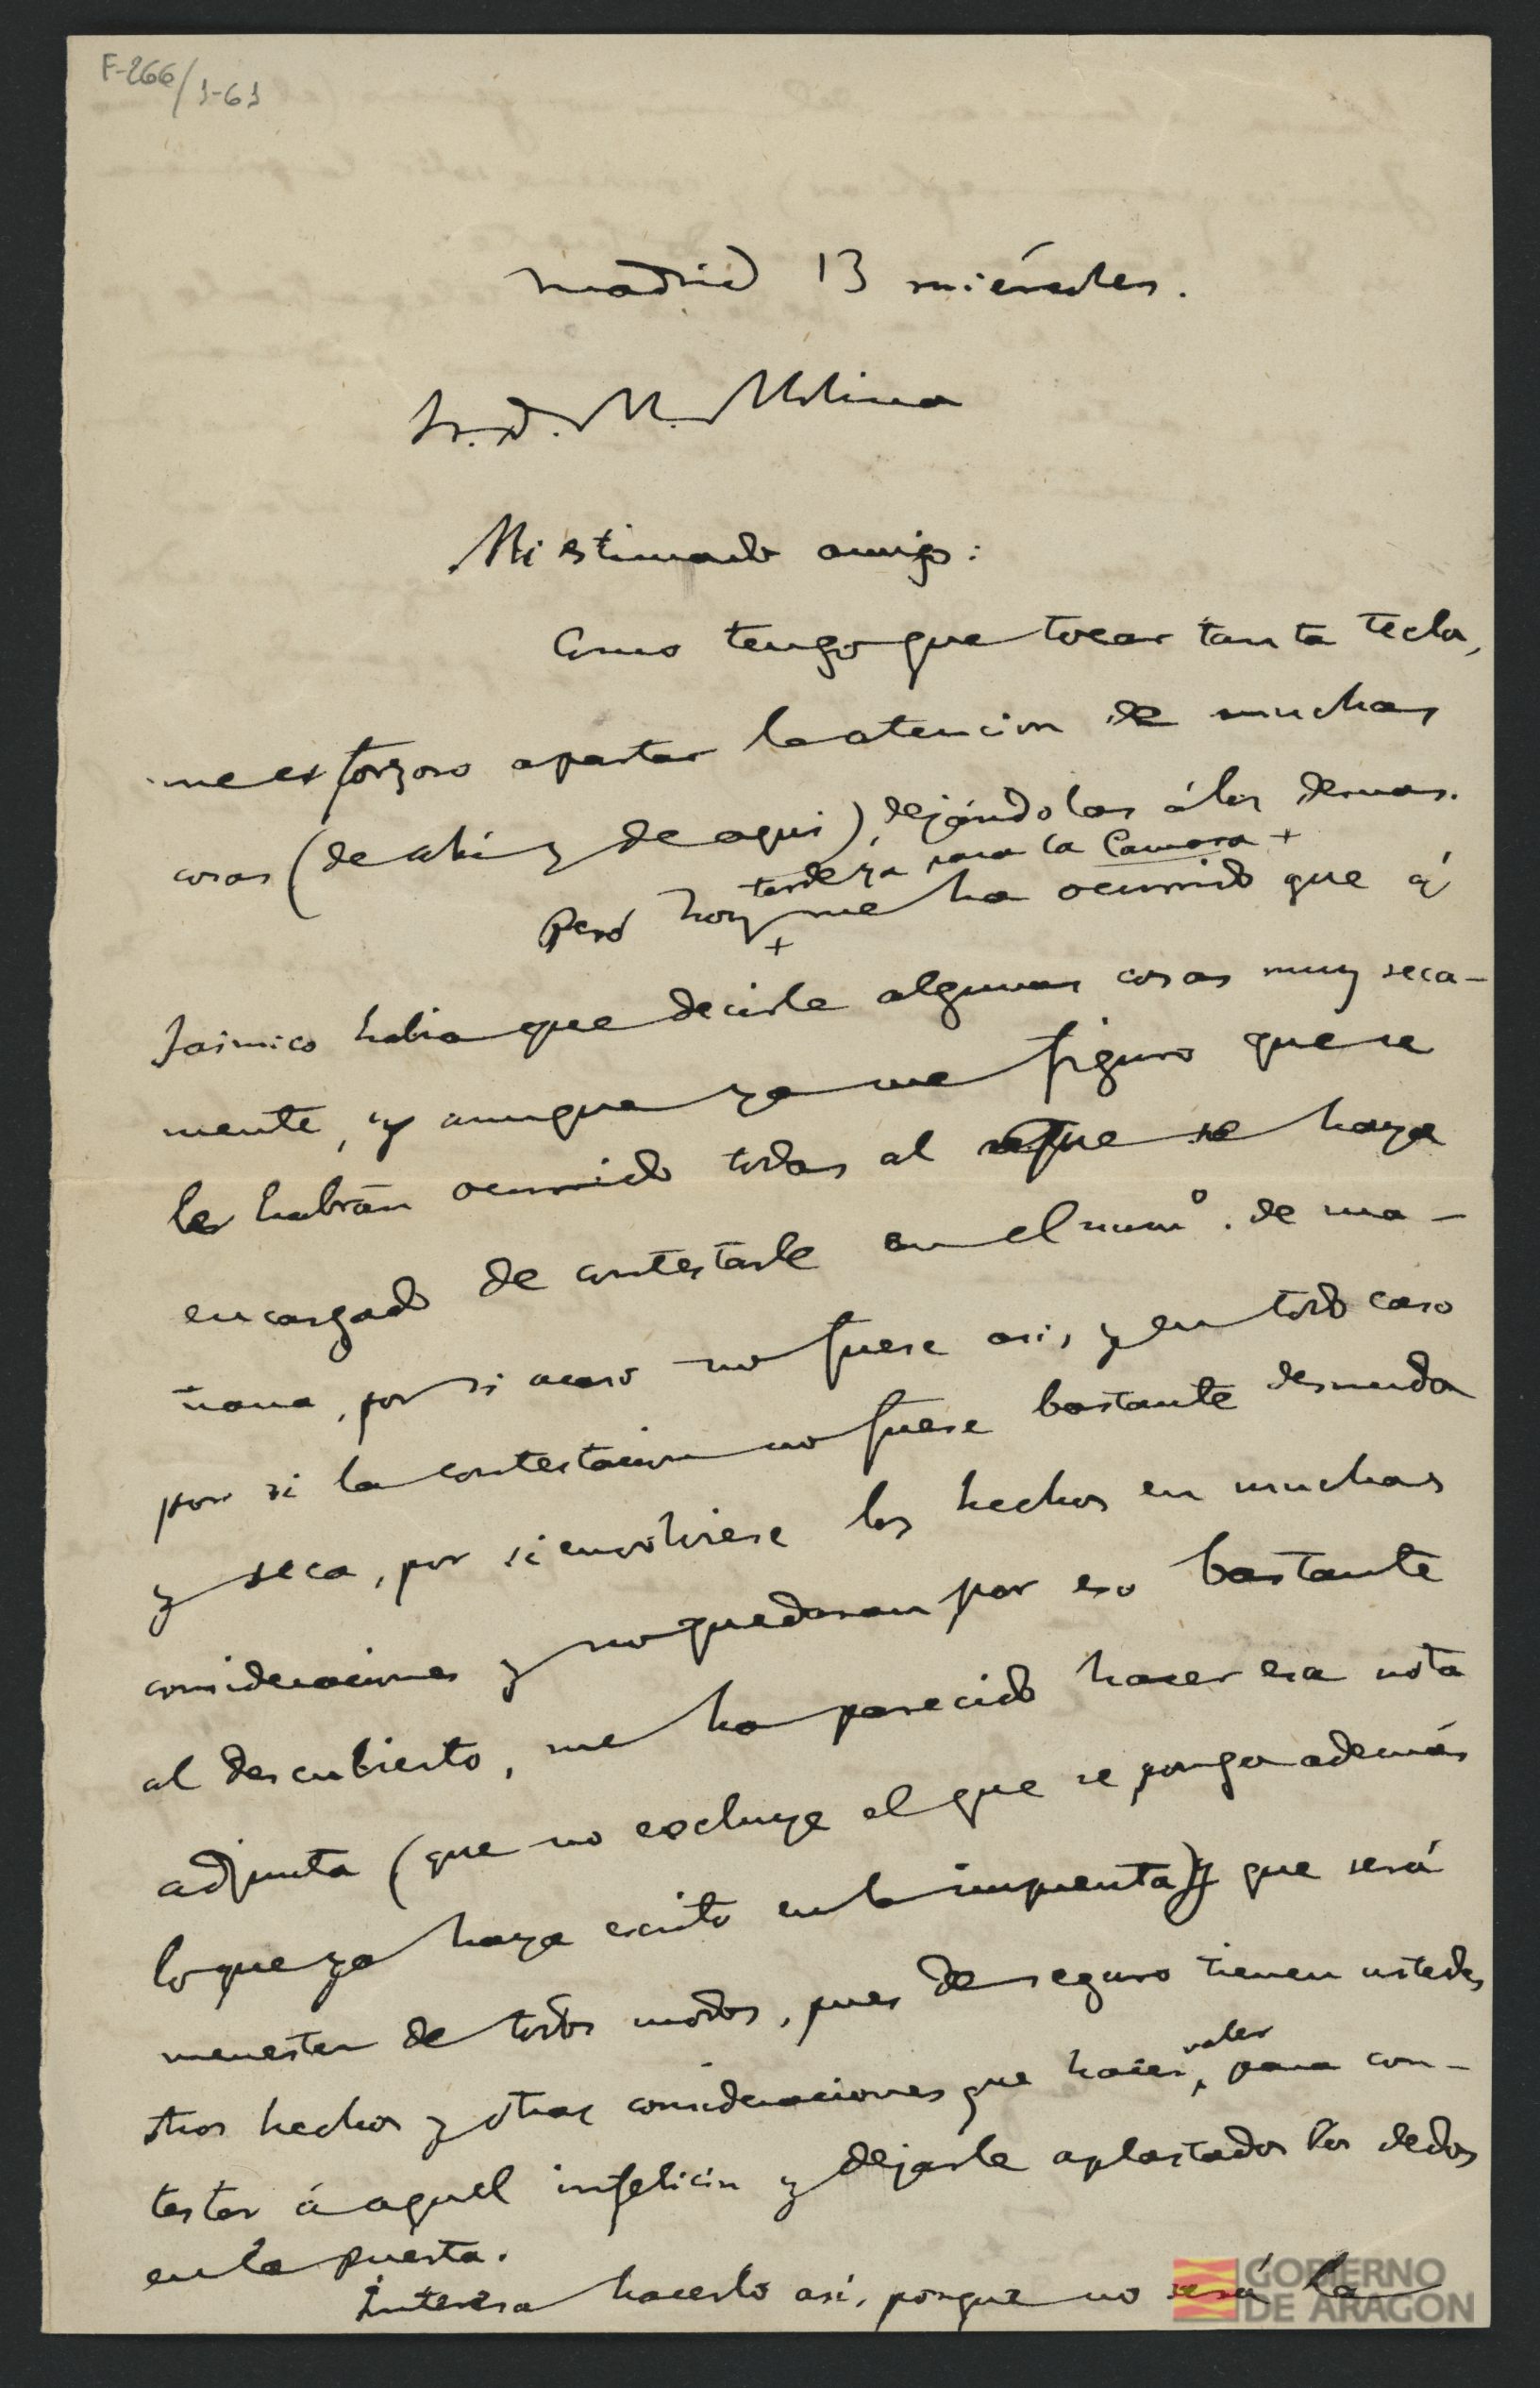 F-266/1-61
Madrid 13 miércoles.
Sr. D. M. Molina
Mi estimado amigo:
Como tengo que tocar tanta tecla,
me es forzoso apartar la atencion de muchas
cosas (de ahí y de aqui), dejándolas á los demas.
tarde ya para la Camara +
Pero hoy + me ha ocurrido que á
Jaimico habia que decirle algunas cosas muy seca-
mente, y aunque ya me figuro que se
les habrán ocurrido todas al que se haya
encargado de contestarle en el numº. de ma-
ñana, por si acaso no fuese asi, y en todo caso
por si la contestacion no fuese bastante desnuda
y seca, por si envolviese los hechos en muchas
consideraciones y no quedaran por eso bastante
al descubierto, me ha parecido hacer esa nota
adjunta (que no excluye el que se ponga además
lo que ya haya escrito en la imprenta) y que será
menester de todos modos, pues de seguro tienen ustedes
otros hechos y otras consideraciones que hacer valer, para con-
testar á aquel infelicin y dejarle aplastados los dedos
en la puerta.
Interesa hacerlo asi, porque no será la
GOBIERNO
DE ARAGON